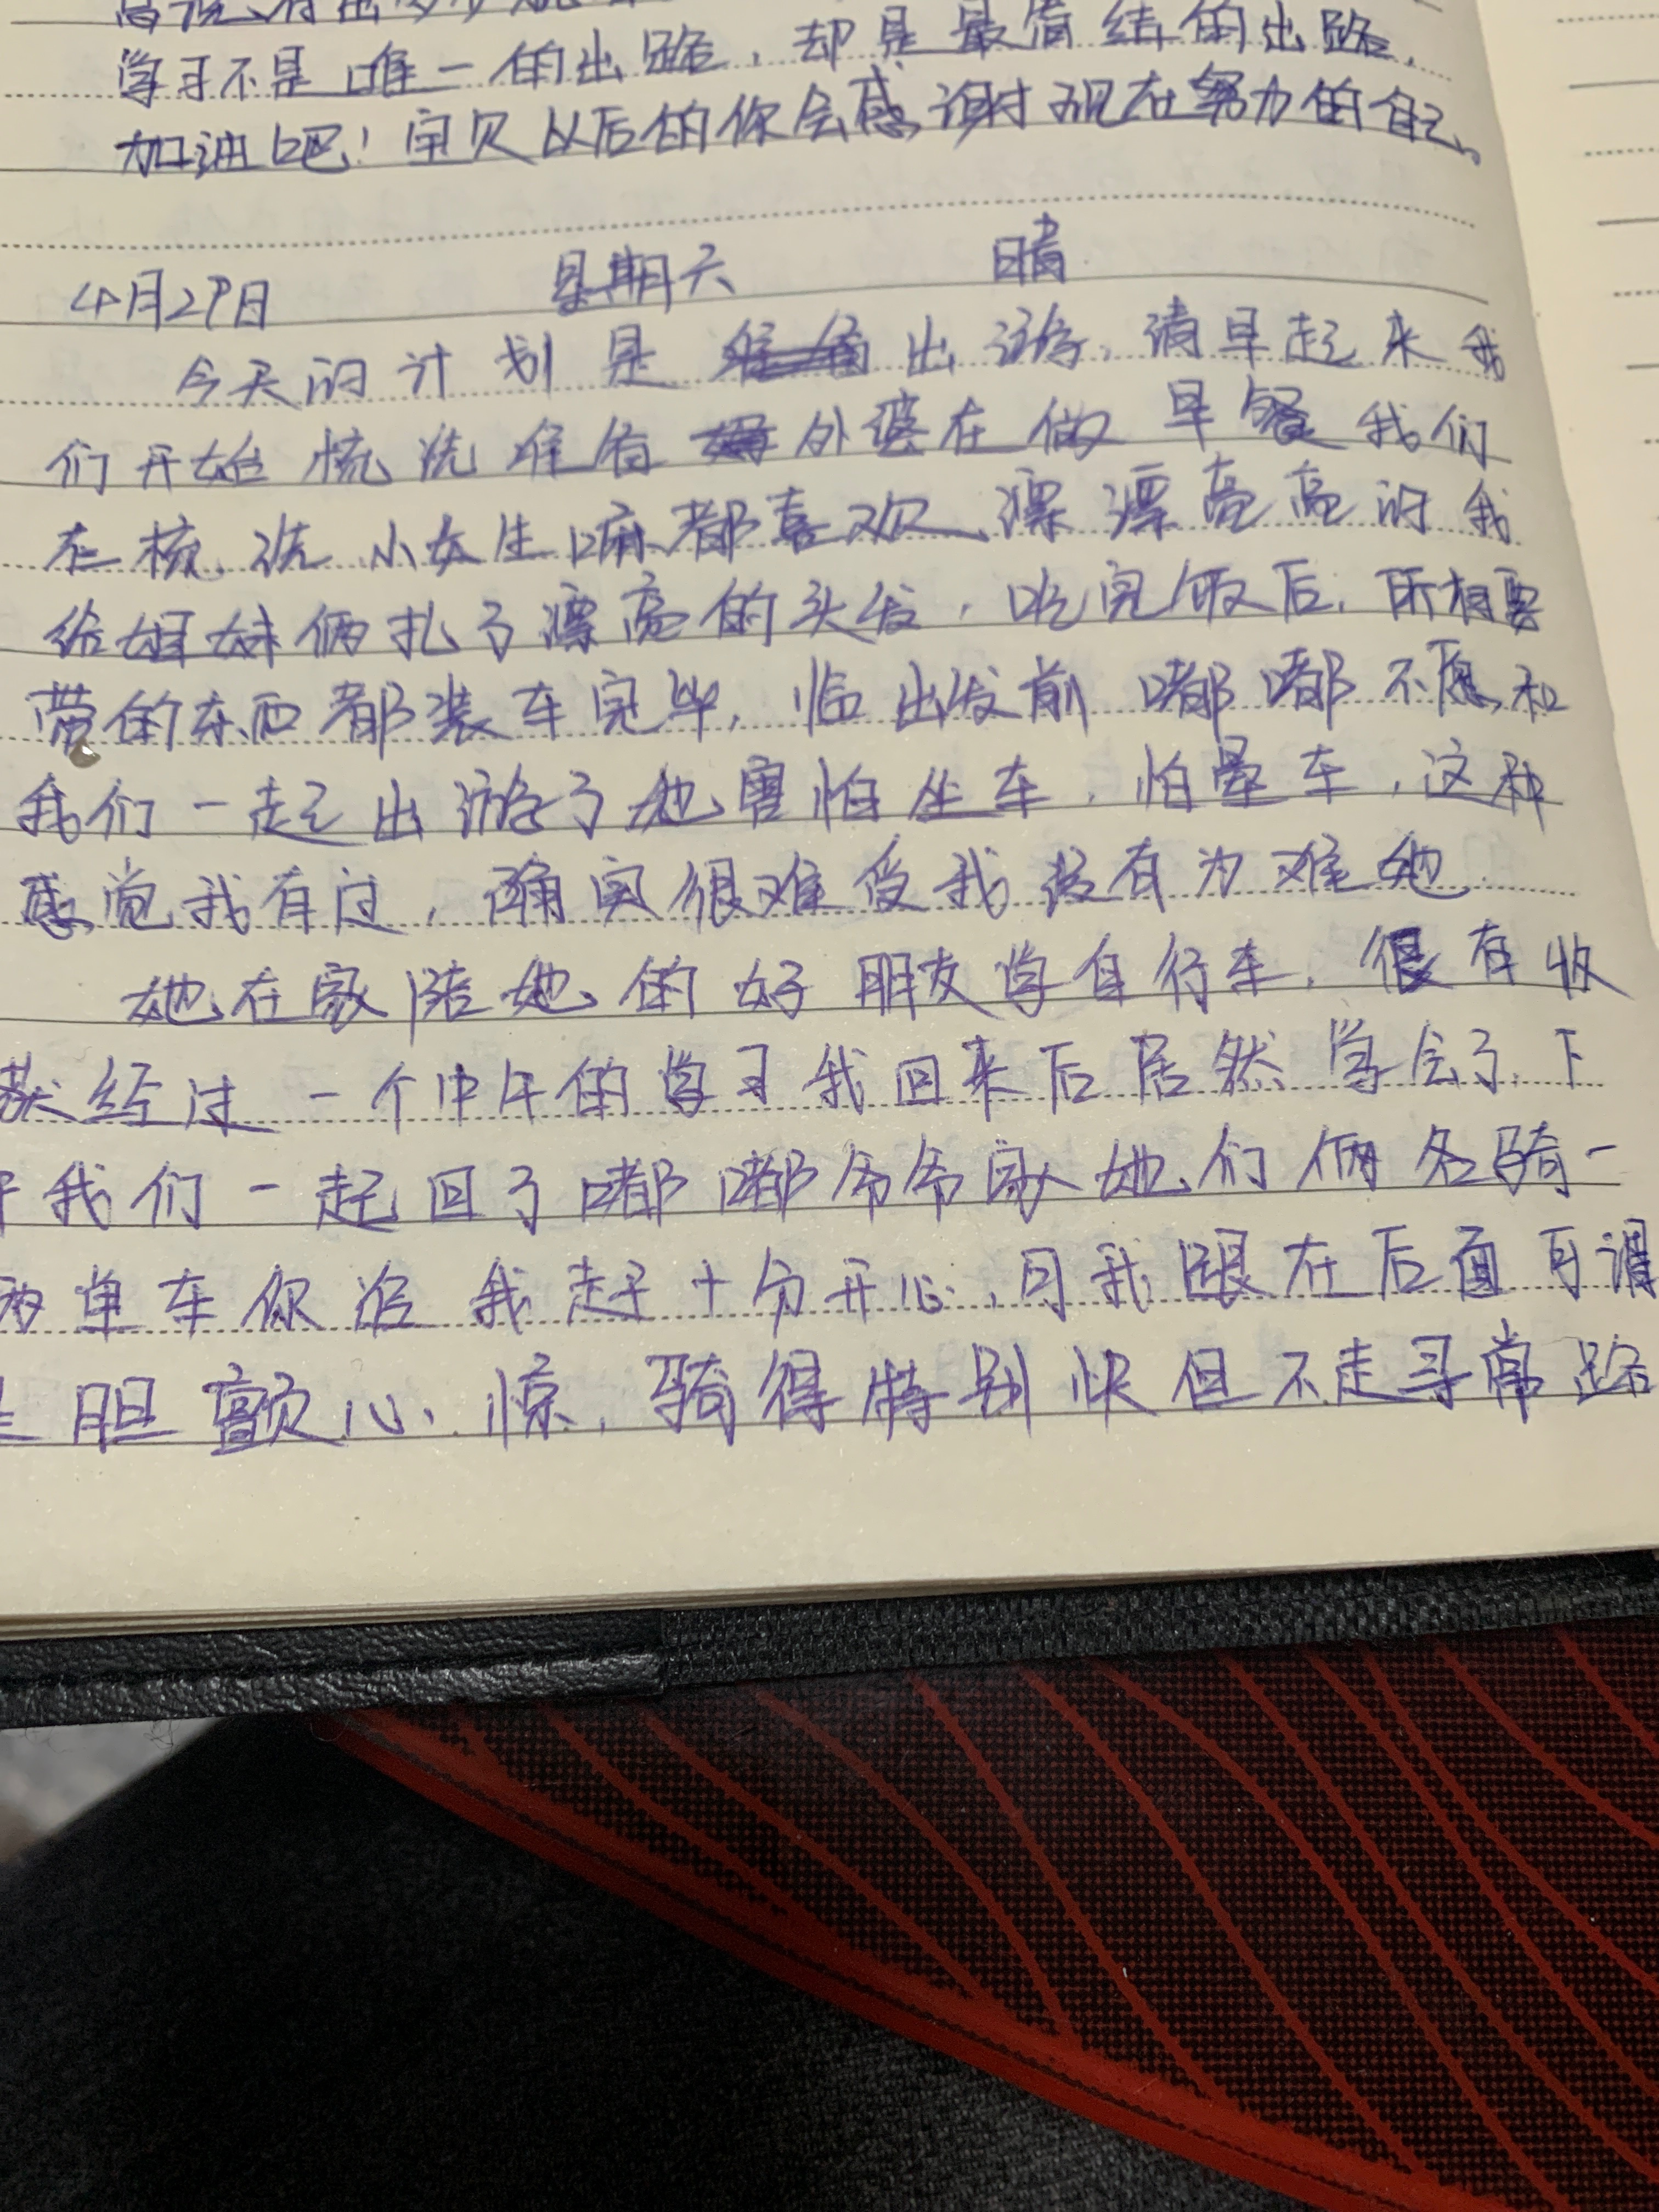 学习不是唯一的出路，却是最值得的出路，
加油吧！宝贝以后的你会感谢现在努力的自己。
4月29日 星期天 晴
今天的计划是出游，清早起来我
们开始梳洗准备外婆在做早餐我们
在梳洗小女生嘛都喜欢漂漂亮亮的我
给姐妹俩扎了漂亮的头发，吃完饭后，所有要
带的东西都装车完毕，临出发前嘟嘟不愿和
我们一起出游了她害怕坐车，怕晕车，这种
感觉我有过，确实很难受我没有为难她
她在家陪她的好朋友学自行车，很有收
获经过一个中午的学习我回来后居然学会了，下
午我们一起回了嘟嘟爷爷家她们俩各骑一
单车你追我赶十分开心，可我跟在后面可谓
是胆颤心惊，骑得特别快但不走寻常路